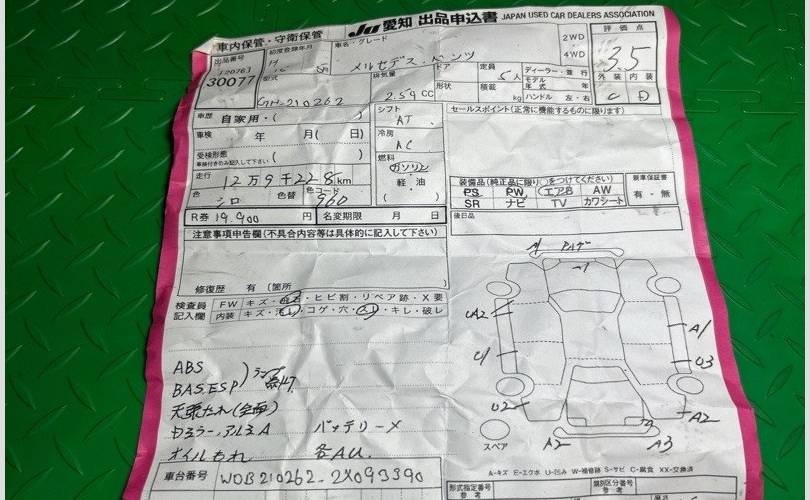 車内保管・守衛保管
JU 愛知 出品申込書 JAPAN USED CAR DEALERS ASSOCIATION
出品番号
30077
初度登録年月
車名・グレード
メルセデス・ベンツ
2WD
4WD
評価点
3.5
外装 内装
C D
型式
GH-210262
排気量
2.59 CC
ドア
形状
定員
5人
積載
kg
ディーラー・並行
モデル年式 年式
ハンドル 左・右
車歴 自家用・( )
車検 年 月( 日)
受検形態 ( )
走行 12万9千228km
色 シロ 色替 色コード 960
R券 19.900 円 名変期限 月 日
シフト
AT
冷房
AC
燃料
ガソリン
軽・油
( )
セールスポイント(正常に機能するものに限ります)
装備品(純正品に限り○をつけてください)
PS PW エアB AW
SR ナビ TV カワシート
新車保証書
有・無
後日品
注意事項申告欄(不具合内容等は具体的に記入して下さい)
修復歴 有 (箇所 )
検査員
記入欄
FW キズ・ ・ヒビ割・リペア跡・X要
内装 キズ・汚レ・コゲ・穴・スレ・キレ・破レ
ABS
BAS.ESP
ランプ点灯
天張たれ(全面)
オイルもれ
バッテリーメ
各AU.
車台番号 WDB210262-2X093390
UA2
U1
U2
A1
U3
A2
A2
A3
スペア
A-キズ E-エクボ U-凹み W-補修跡 S-サビ C-腐食 XX-交換済
型式指定番号
参考
類別区分番号
参考